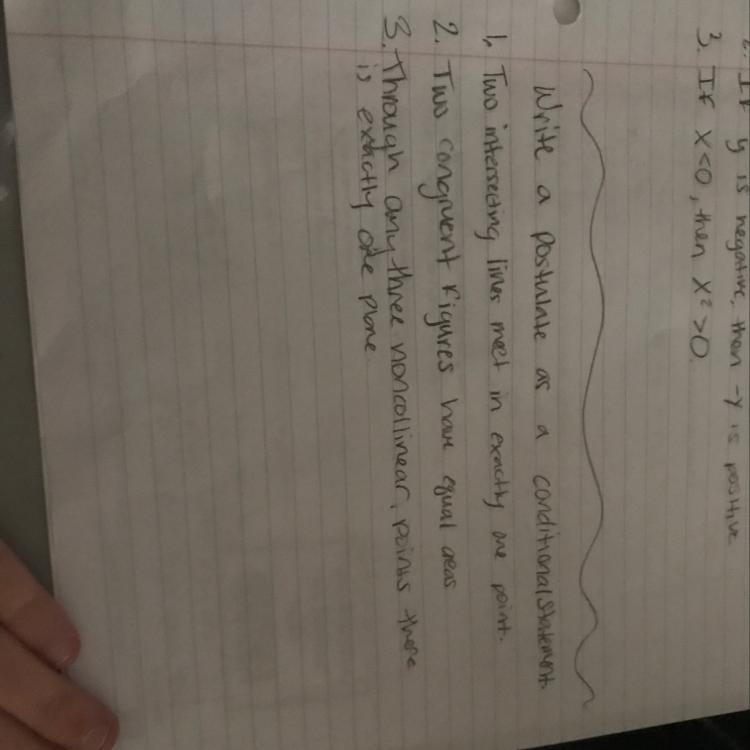 2. If y is negative, then -y is positive
3. If x<0, then x²>0
Write a postulate as a conditional statement.
1. Two intersecting lines meet in exactly one point.
2. Two congruent figures have equal areas
3. Through any three noncollinear, points there
is exactly one plane